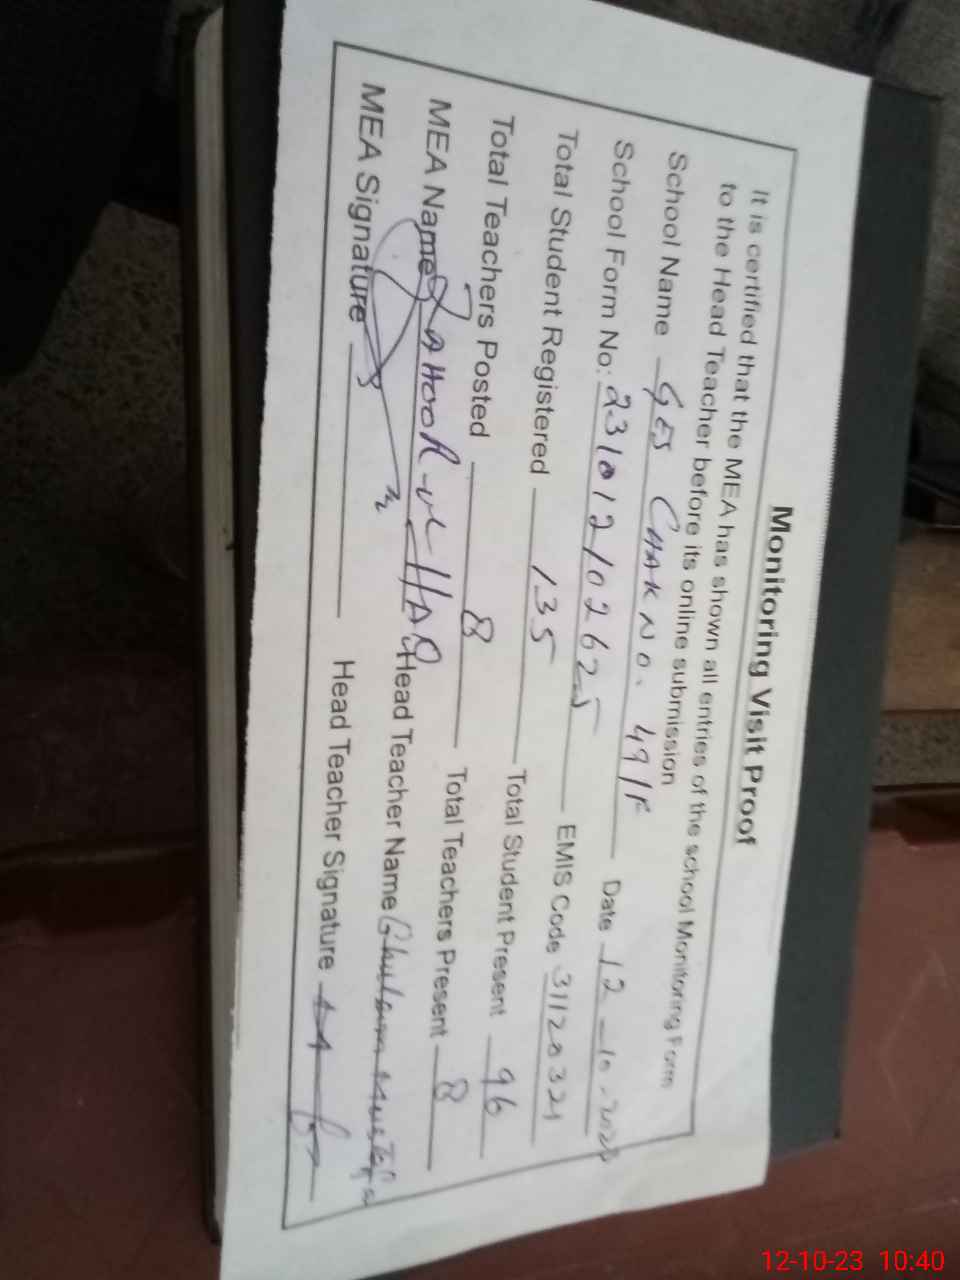 Monitoring Visit Proof
It is certified that the MEA has shown all entries of the school Monitoring Form
to the Head Teacher before its online submission
School Name GES CHAK NO. 49/F Date 12-10-2023
School Form No: 231012102625 EMIS Code 31120321
Total Student Registered 135 Total Student Present 96
Total Teachers Posted 8 Total Teachers Present 8
MEA Name ZAHOOR-ul-HAQ Head Teacher Name Ghulam Mustafa
MEA Signature Head Teacher Signature
12-10-23 10:40